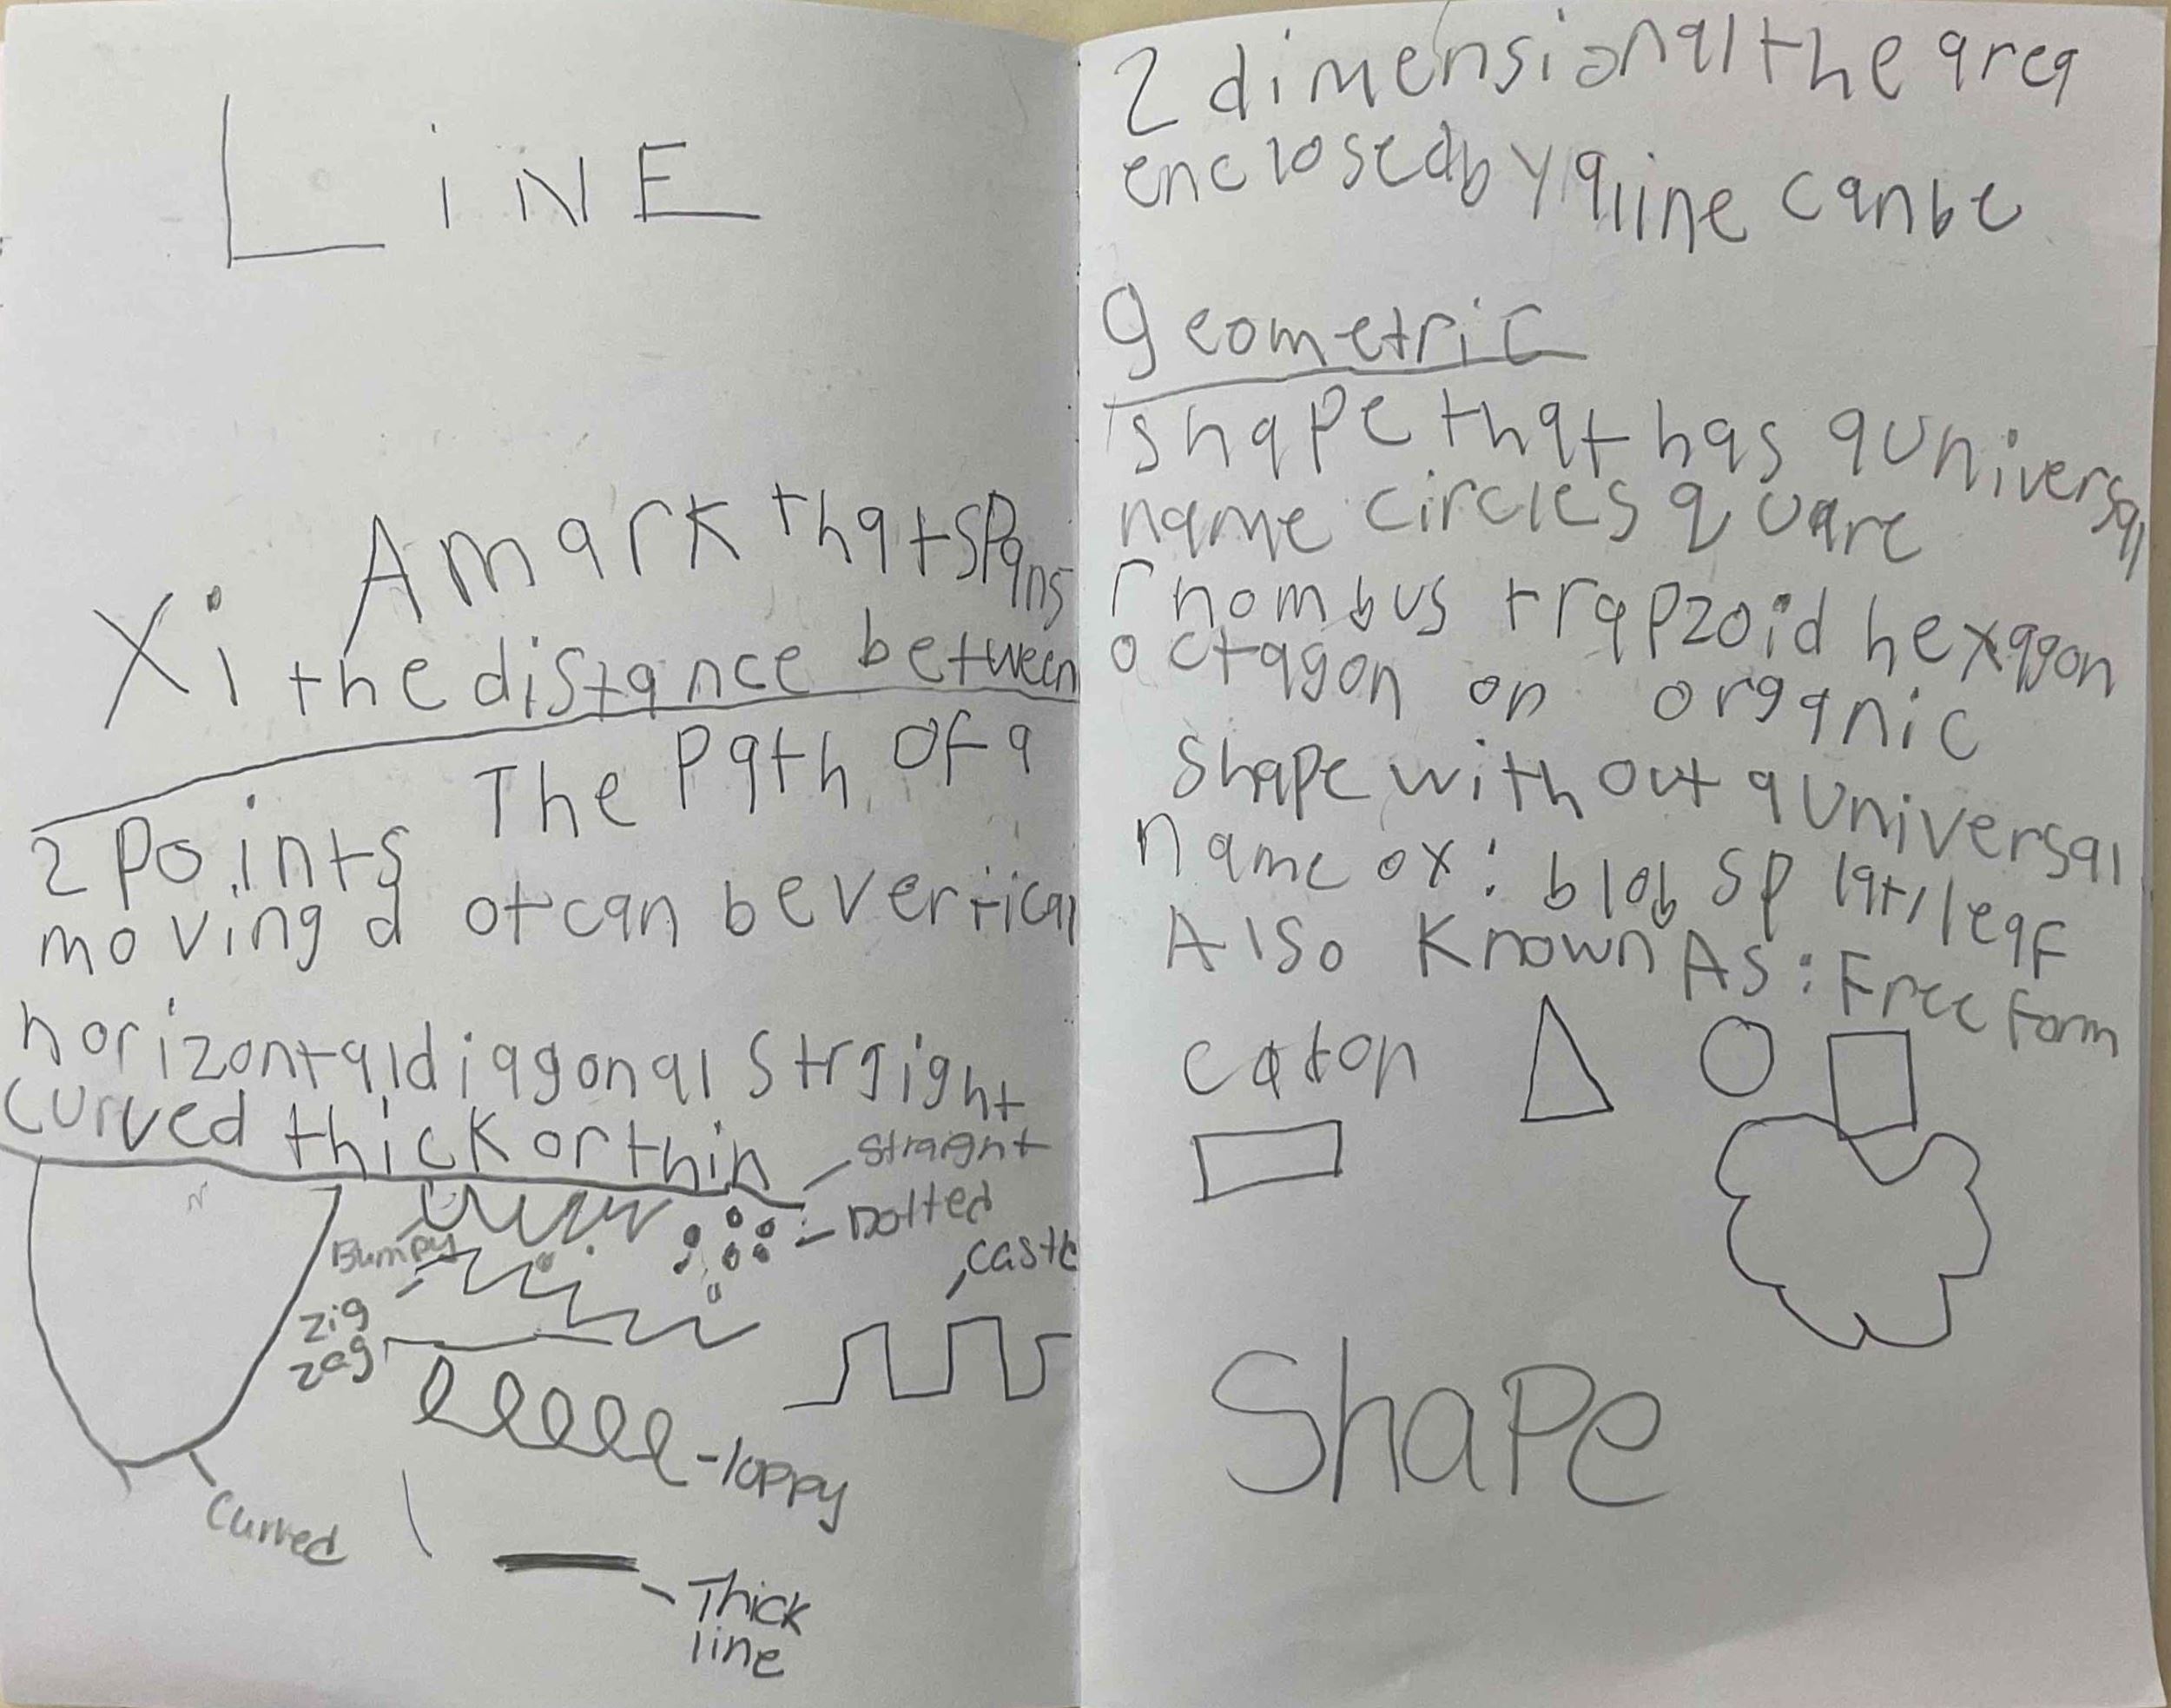 LiNE
A mark that spans
Xi the distance between
2 points The Path of a
moving dot can be vertical
horizontal diagonal Straight
curved thick or thin
straight
Dotted
Bumpy
castle
zig
zag
loppy
Curved
Thick
line
2 dimensional the area
enclosed by a line can be
geometric
shape that has a universal
name circle square
rhombus trapzoid hexagon
octagon or organic
shape without a universal
name ox: blob splat/leaf
Also Known As: Free form
Shape